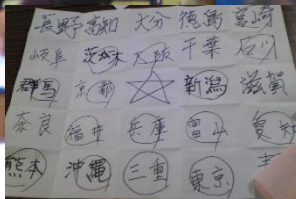 長野 高知 大分 徳島 宮崎
岐阜 茨木 大阪 千葉 石川
群馬 京都 新潟 滋賀
奈良 福井 兵庫 富山 愛知
熊本 沖縄 三重 東京